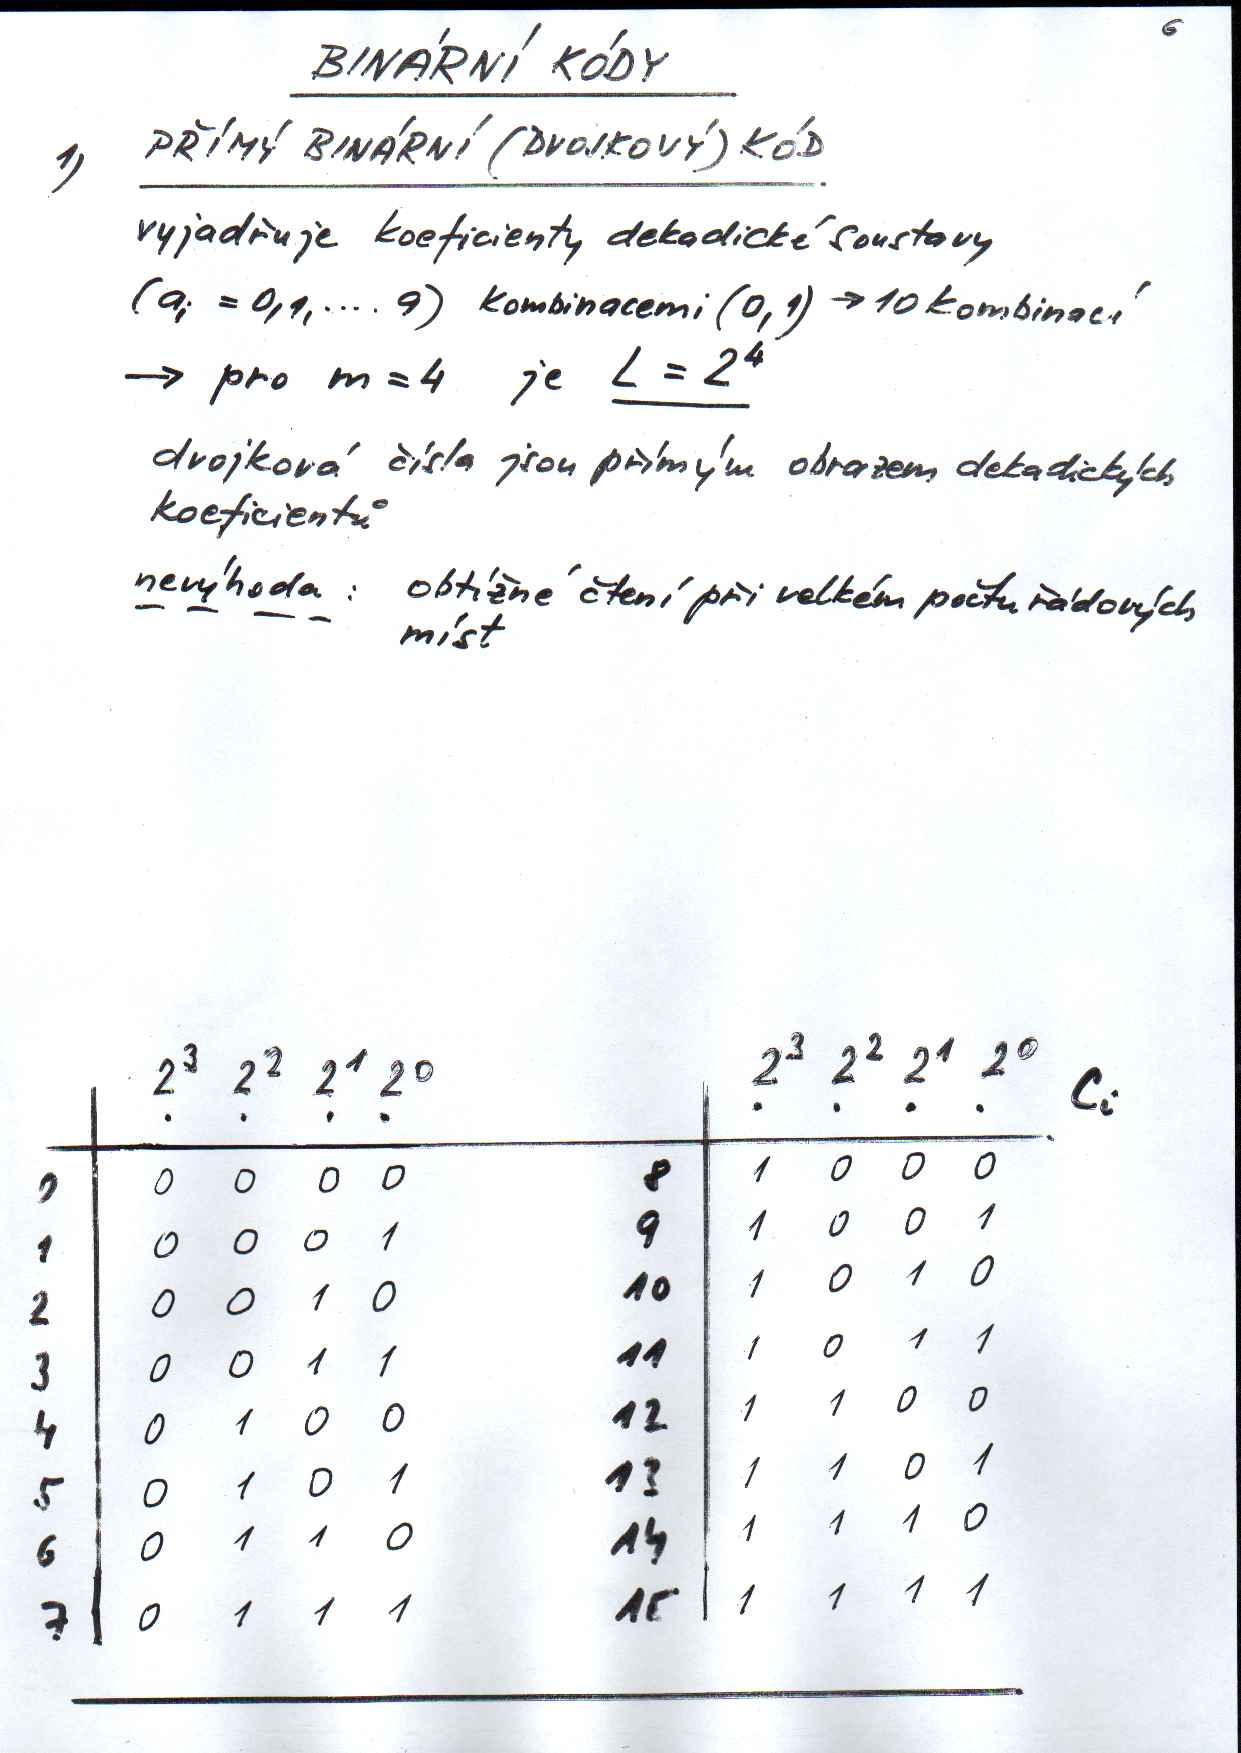 6
BINÁRNÍ KÓDY
1) PŘÍMÝ BINÁRNÍ (DVOJKOVÝ) KÓD
vyjadřuje koeficienty dekadické soustavy
(ai = 0,1,.... 9) kombinacemi (0,1) → 10 kombinací
→ pro m = 4 je L = 2⁴
dvojková čísla jsou přímým obrazem dekadických
koeficientů
nevýhoda : obtížné čtení při velkém počtu řádových
míst
2³ 2² 2¹ 2⁰ 2³ 2² 2¹ 2⁰ Ci
0 0 0 0 0 8 1 0 0 0
1 0 0 0 1 9 1 0 0 1
2 0 0 1 0 10 1 0 1 0
3 0 0 1 1 11 1 0 1 1
4 0 1 0 0 12 1 1 0 0
5 0 1 0 1 13 1 1 0 1
6 0 1 1 0 14 1 1 1 0
7 0 1 1 1 15 1 1 1 1